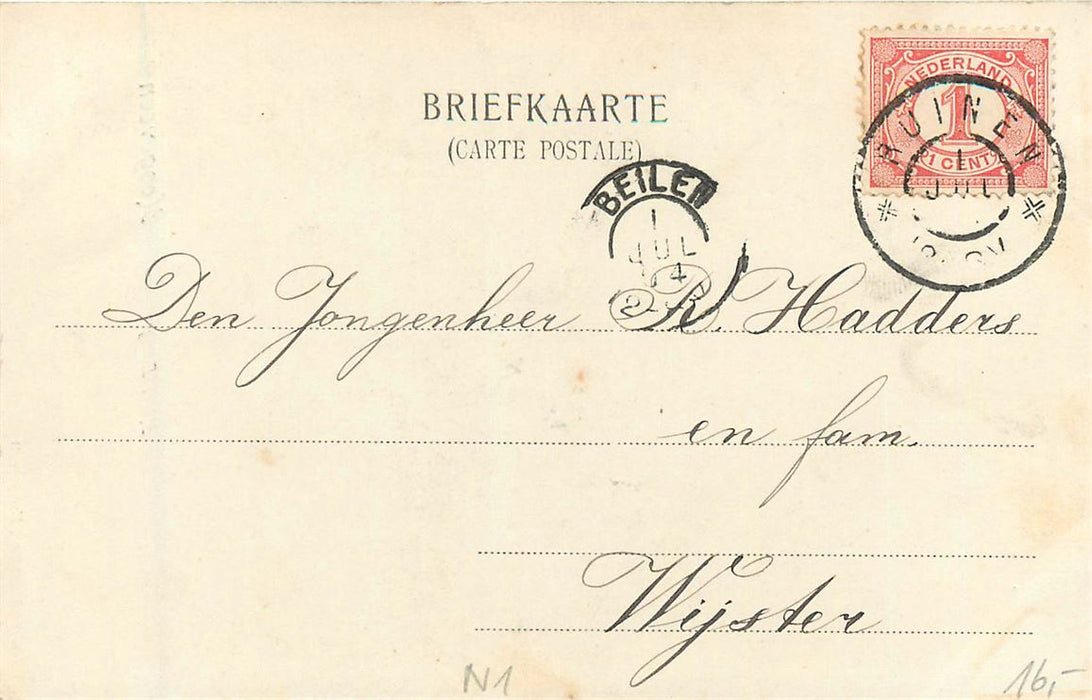 NEDERLAND
1
1 CENT
BRIEFKAARTE
(CARTE POSTALE)
RUINEN
1
JUL
BEILEN
1
JUL
4
2-3
Den Jongenheer R. Hadders
en fam.
Wijster
N1
16,-